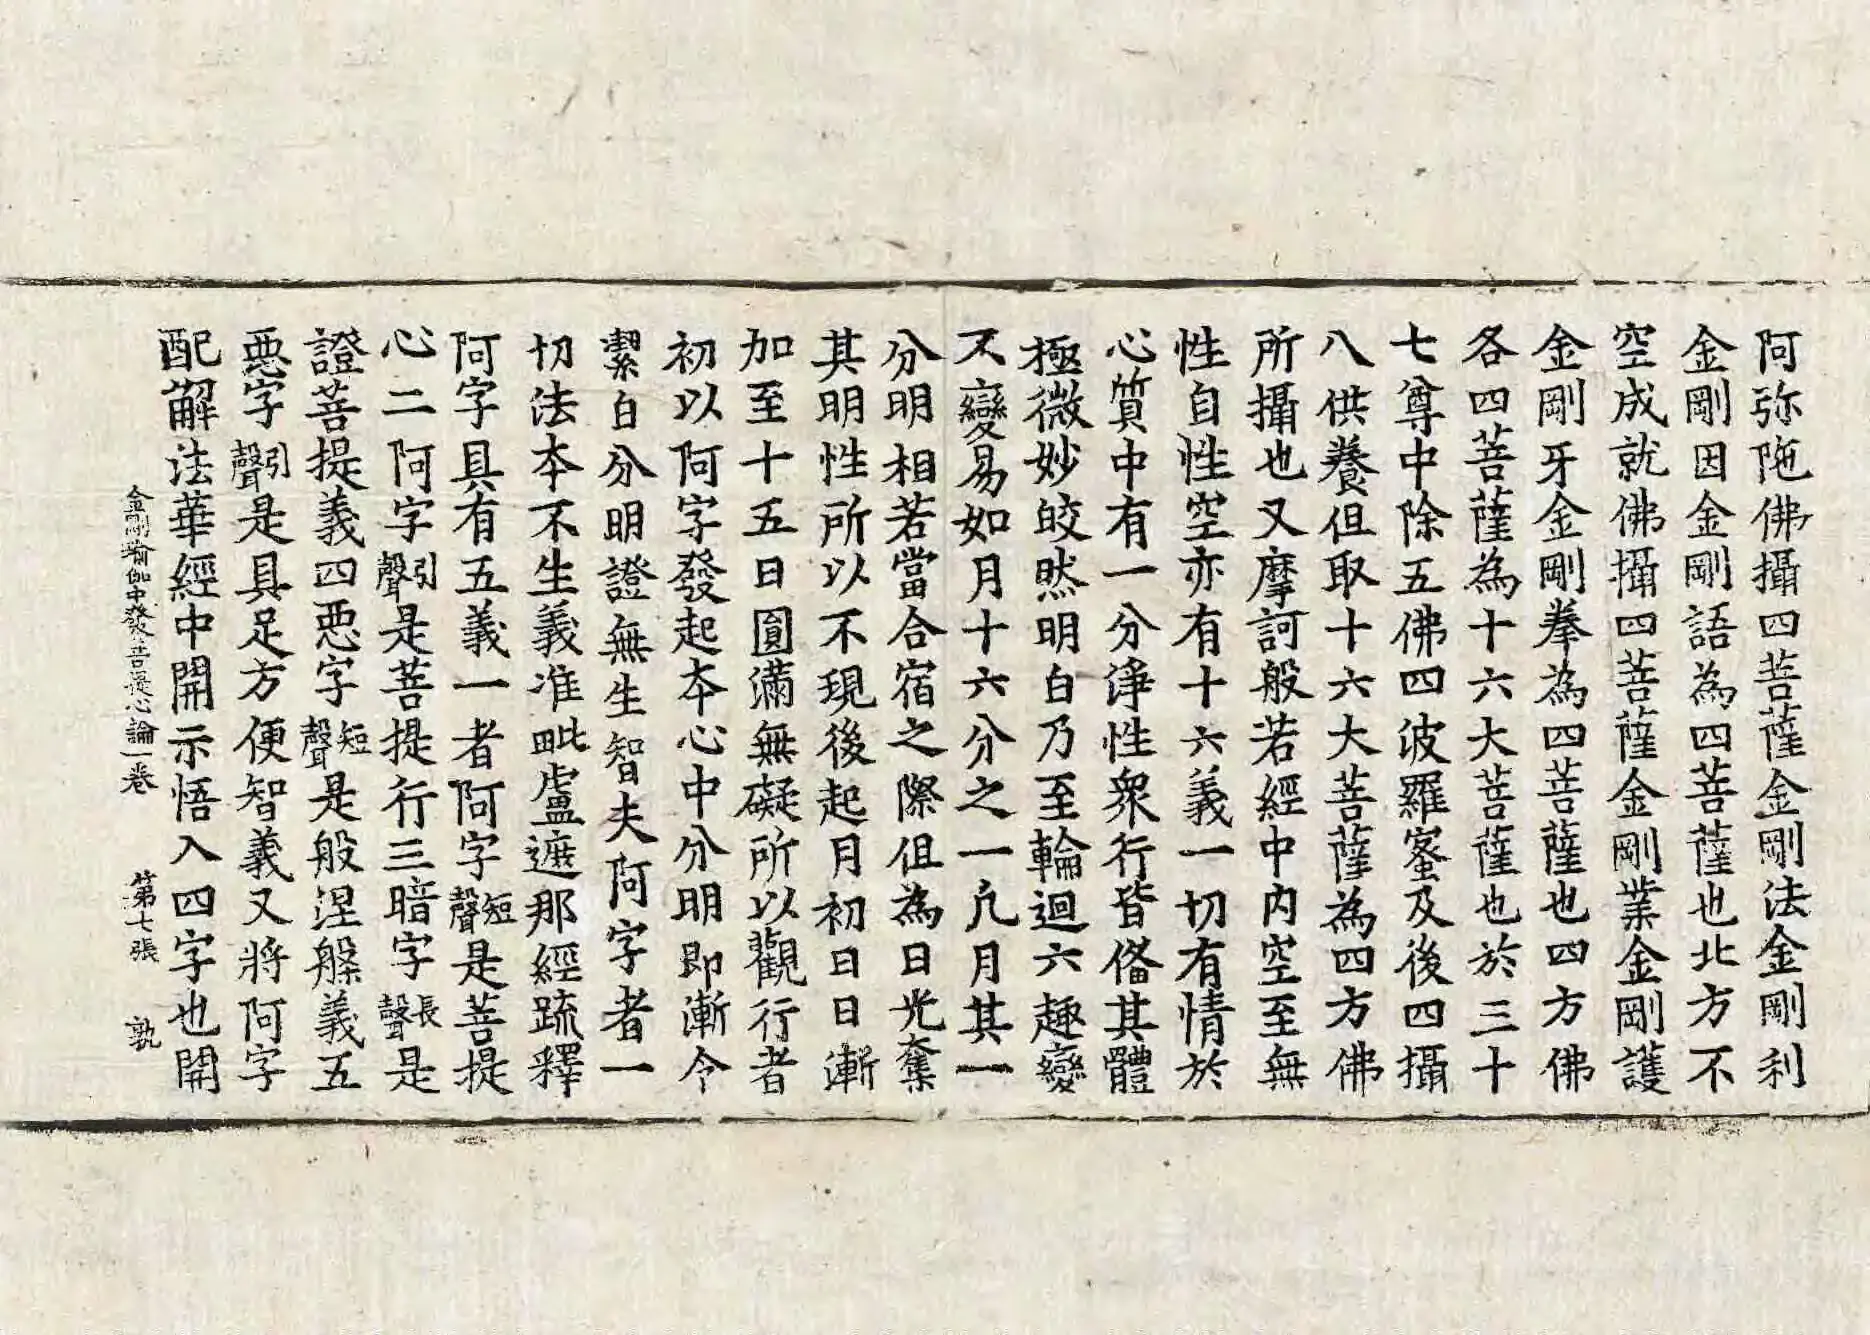 阿弥陁佛攝四菩薩金剛法金剛利
金剛因金剛語為四菩薩也北方不
空成就佛攝四菩薩金剛業金剛護
金剛牙金剛拳為四菩薩也四方佛
各四菩薩為十六大菩薩也於三十
七尊中除五佛四波羅蜜及後四攝
八供養但取十六大菩薩為四方佛
所攝也又摩訶般若經中內空至無
性自性空亦有十六義一切有情於
心質中有一分淨性衆行皆俻其體
極微妙皎然明白乃至輪迴六趣變
不變易如月十六分之一凢月其一
分明相若當合宿之際但為日光奪
其明性所以不現後起月初日日漸
加至十五日圓滿無礙所以觀行者
初以阿字發起本心中分明即漸令
潔白分明證無生智夫阿字者一
切法本不生義准毗盧遮那經疏釋
阿字具有五義一者阿字短聲是菩提
心二阿字引聲是菩提行三暗字長聲是
證菩提義四惡字短聲是般涅槃義五
惡字引聲是具足方便智義又將阿字
配解法華經中開示悟入四字也開
金剛瑜伽中發菩提心論一卷 第七張 孰